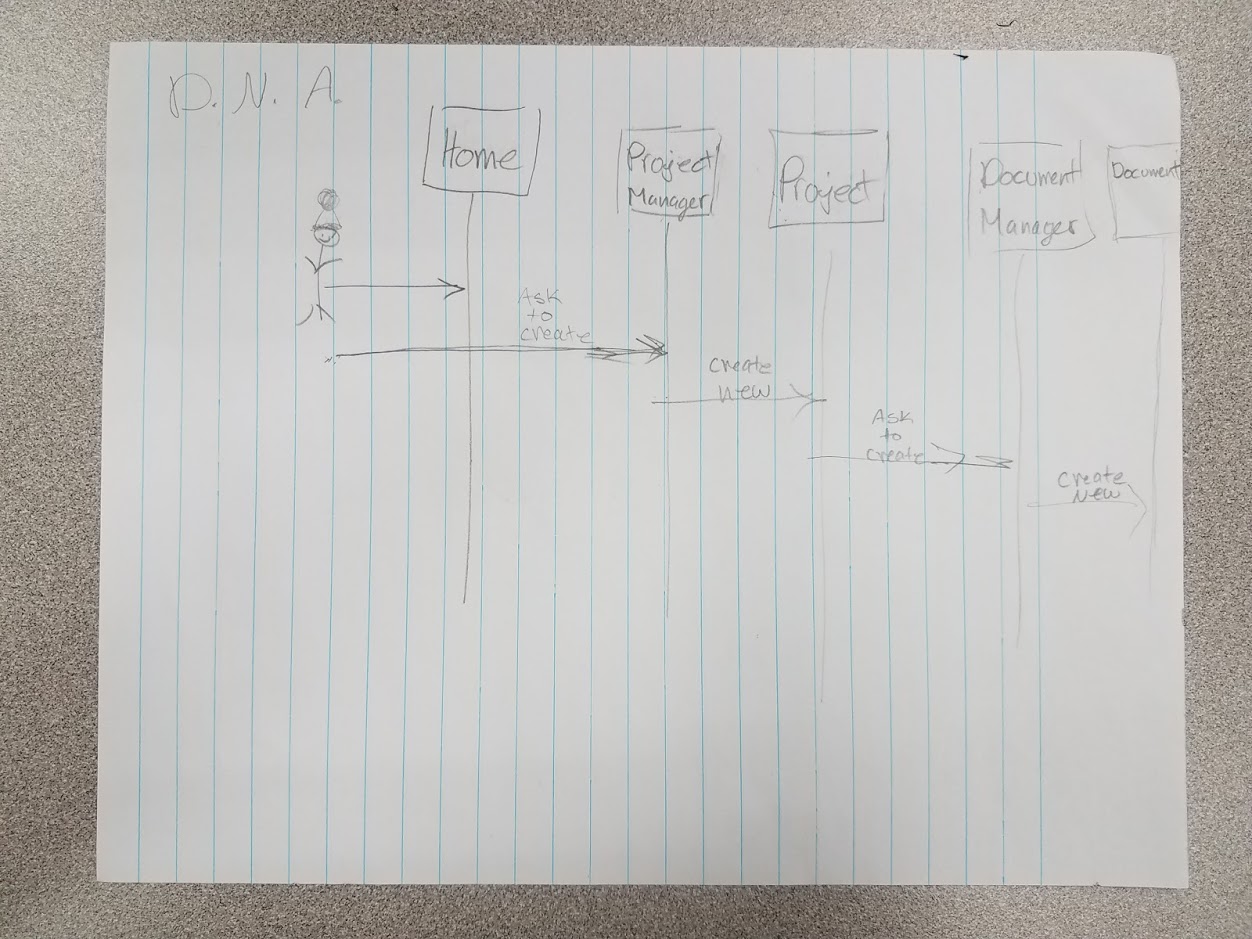 D. N. A.
Home
Project
Manager
Project
Document
Manager
Document
Ask
to
create
create
new
Ask
to
create
create
New